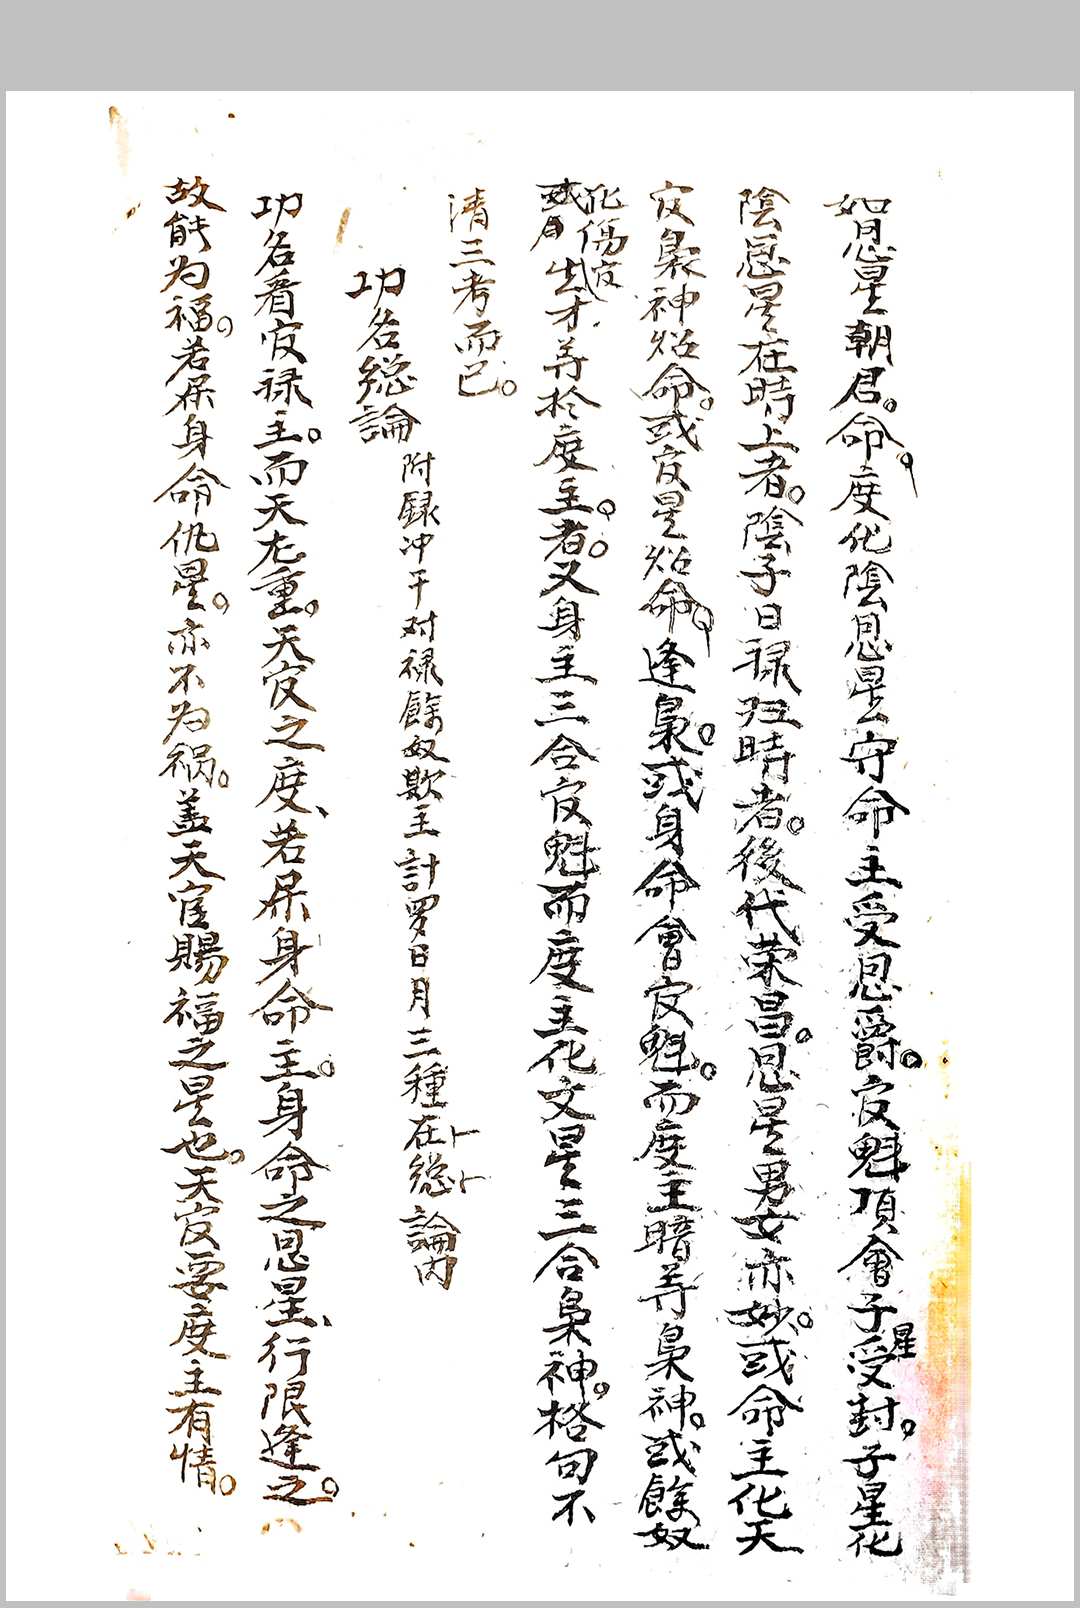 如恩星朝君。命。度化陰恩星守命主受恩爵。官魁頂會子星受封。子星化
陰恩星在時上者。陰子日禄归時者。後代荣昌。恩星男女亦妙。或命主化天
官梟神炤命。或官星炤命。逢梟。或身命會官魁。而度主暗荐梟神。或餘奴
化傷官或月出才荐於度主。者。又身主三合官魁而度主化文星三合梟神。格句不
清三考而已。
功名總論 附録冲干对禄餘奴欺主計罗日月三種在總論内
功名看官禄主。而天尤重。天官之度、若屎身命主。身命之恩星、行限逢之。
故能为福。若屎身命仇星。亦不为祸。盖天官賜福之星也。天官要度主有情。